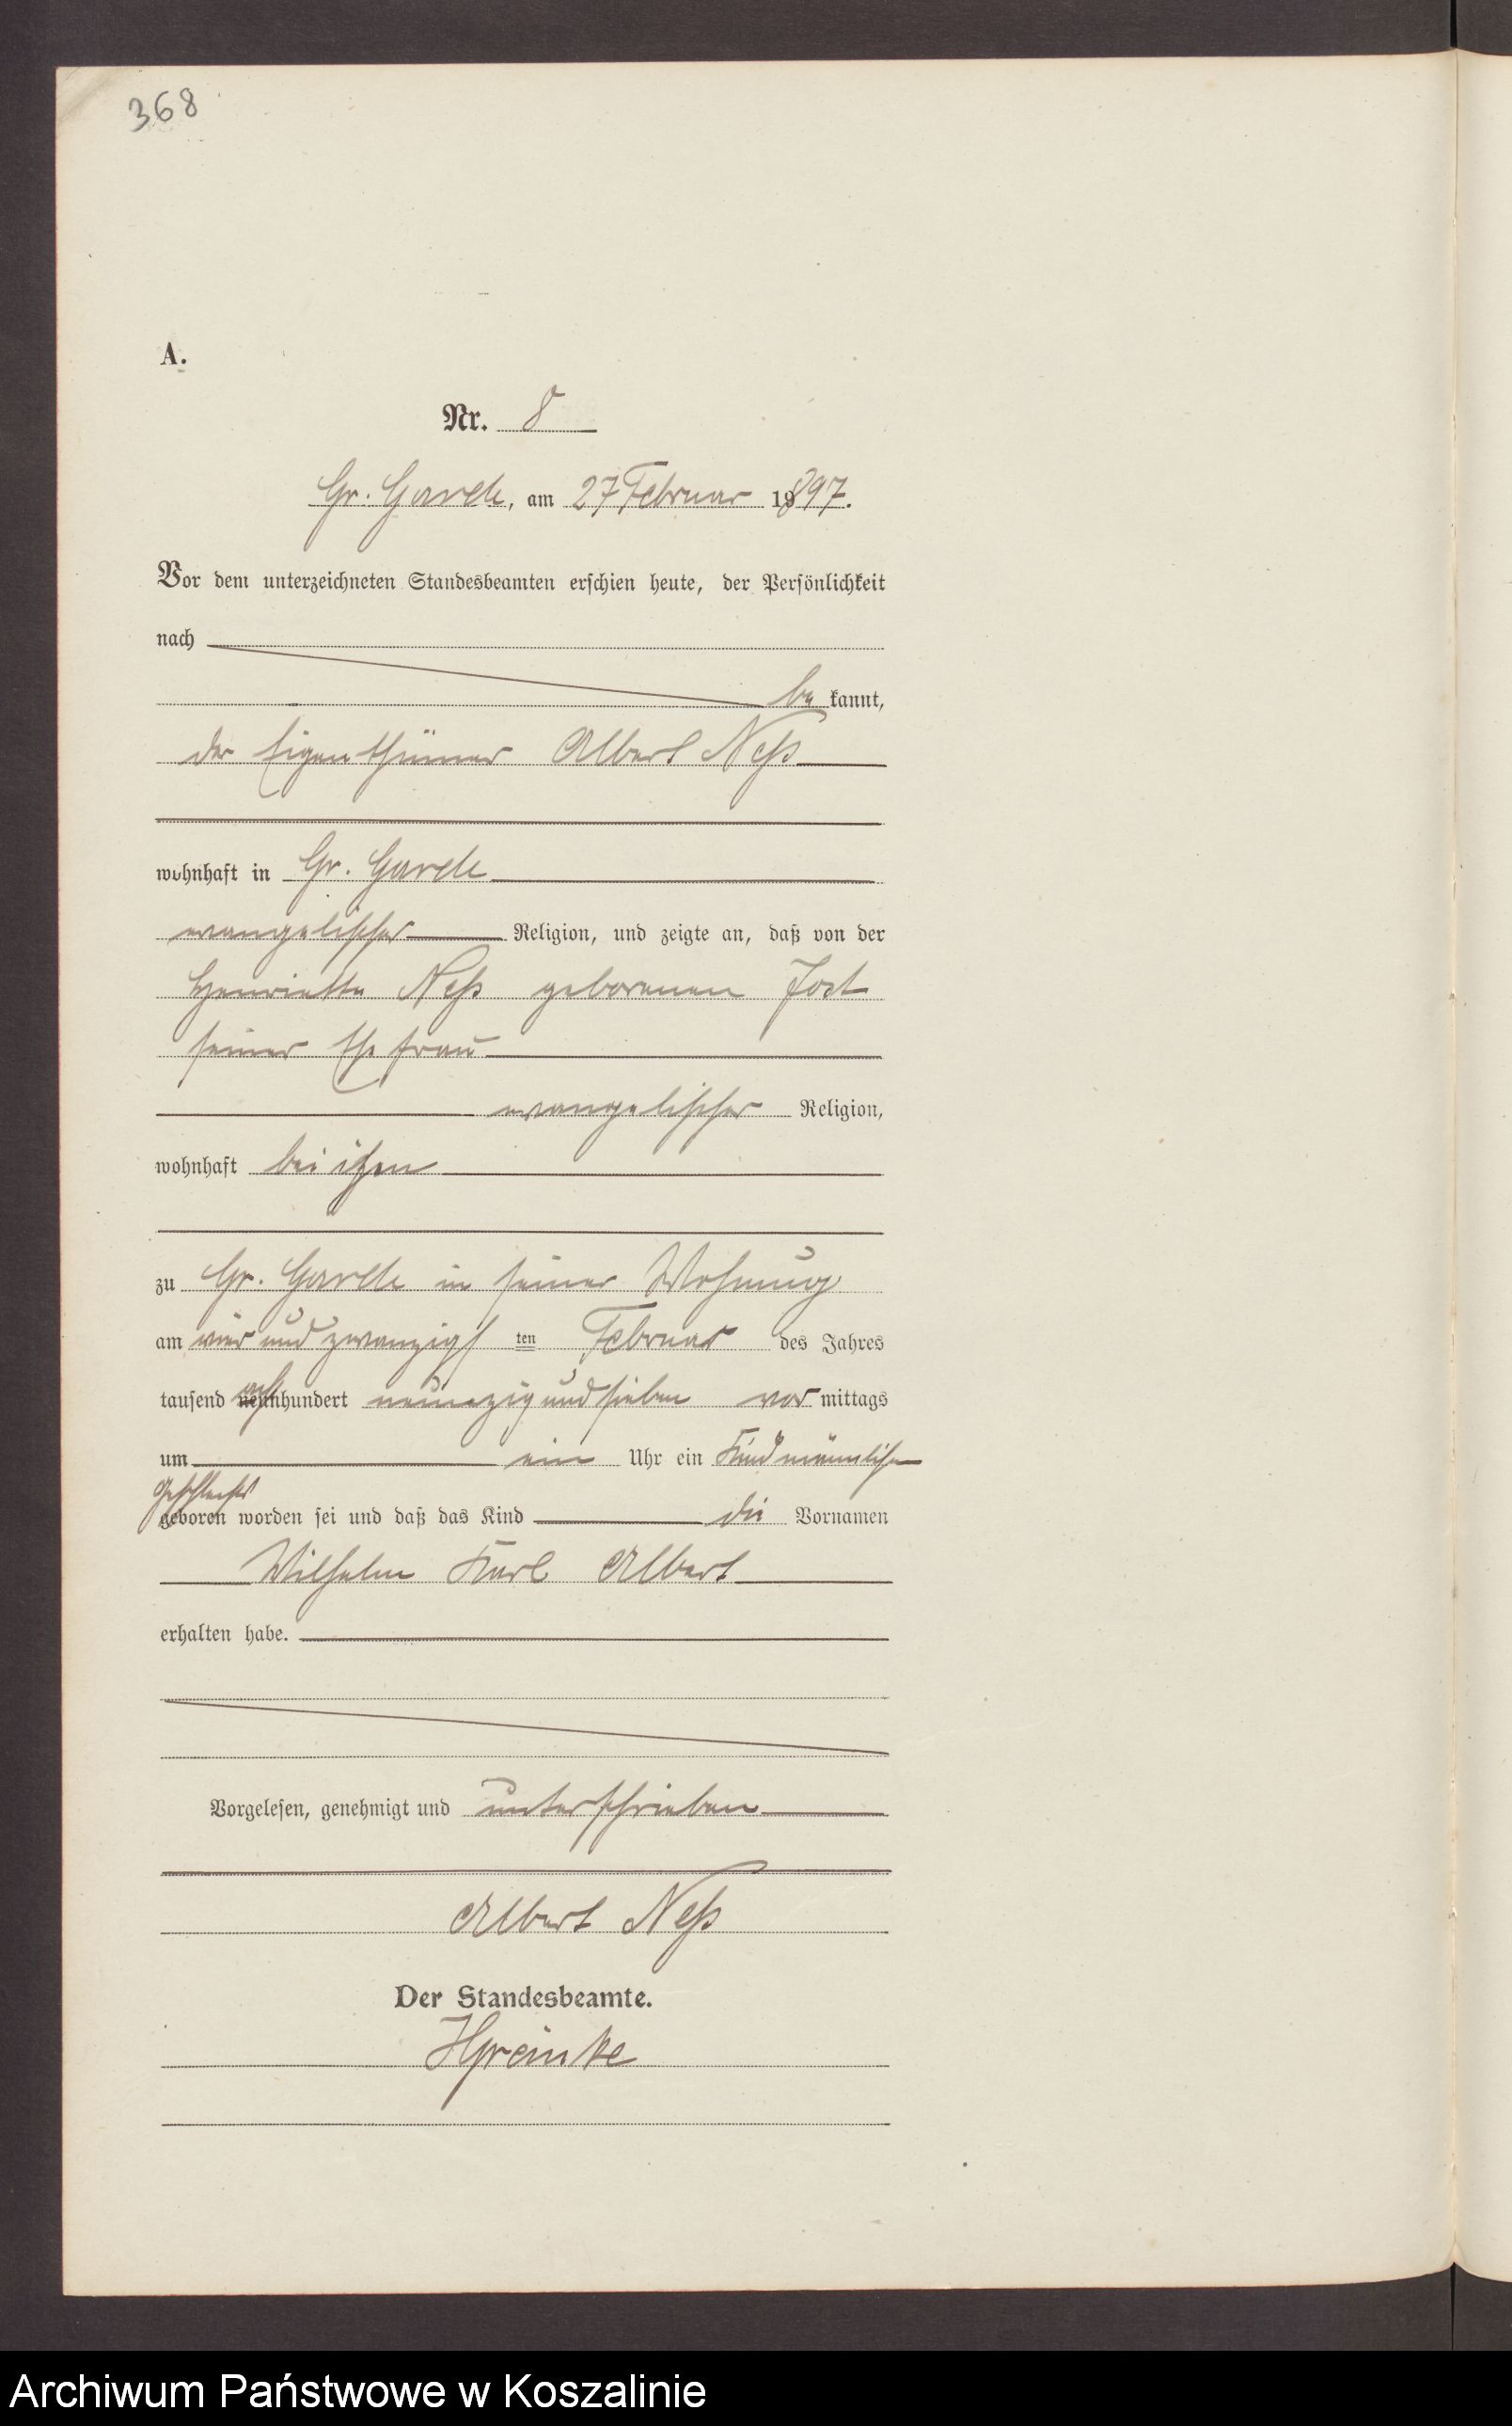 368
A.
Nr. 8
Gr. Garde, am 27 Februar 1897.
Vor dem unterzeichneten Standesbeamten erschien heute, der Persönlichkeit
nach
be kannt,
der Eigenthümer Albert Neß
wohnhaft in Gr. Garde
evangelischer Religion, und zeigte an, daß von der
Henriette Neß geborenen Jost
seiner Ehefrau
evangelischer Religion,
wohnhaft bei ihm
zu Gr. Garde in seiner Wohnung
am vier und zwanzigs ten Februar des Jahres
tausend acht hundert neunzig und sieben vor mittags
um ein Uhr ein Kind männlichen
Geschlechts
geboren worden sei und daß das Kind die Vornamen
Wilhelm Karl Albert
erhalten habe.
Vorgelesen, genehmigt und unterschrieben
Albert Neß
Der Standesbeamte.
Archiwum Państwowe w Koszalinie